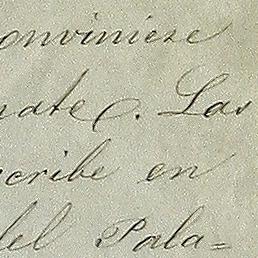 onviniere
nate. Las
scribe en
del Pala=